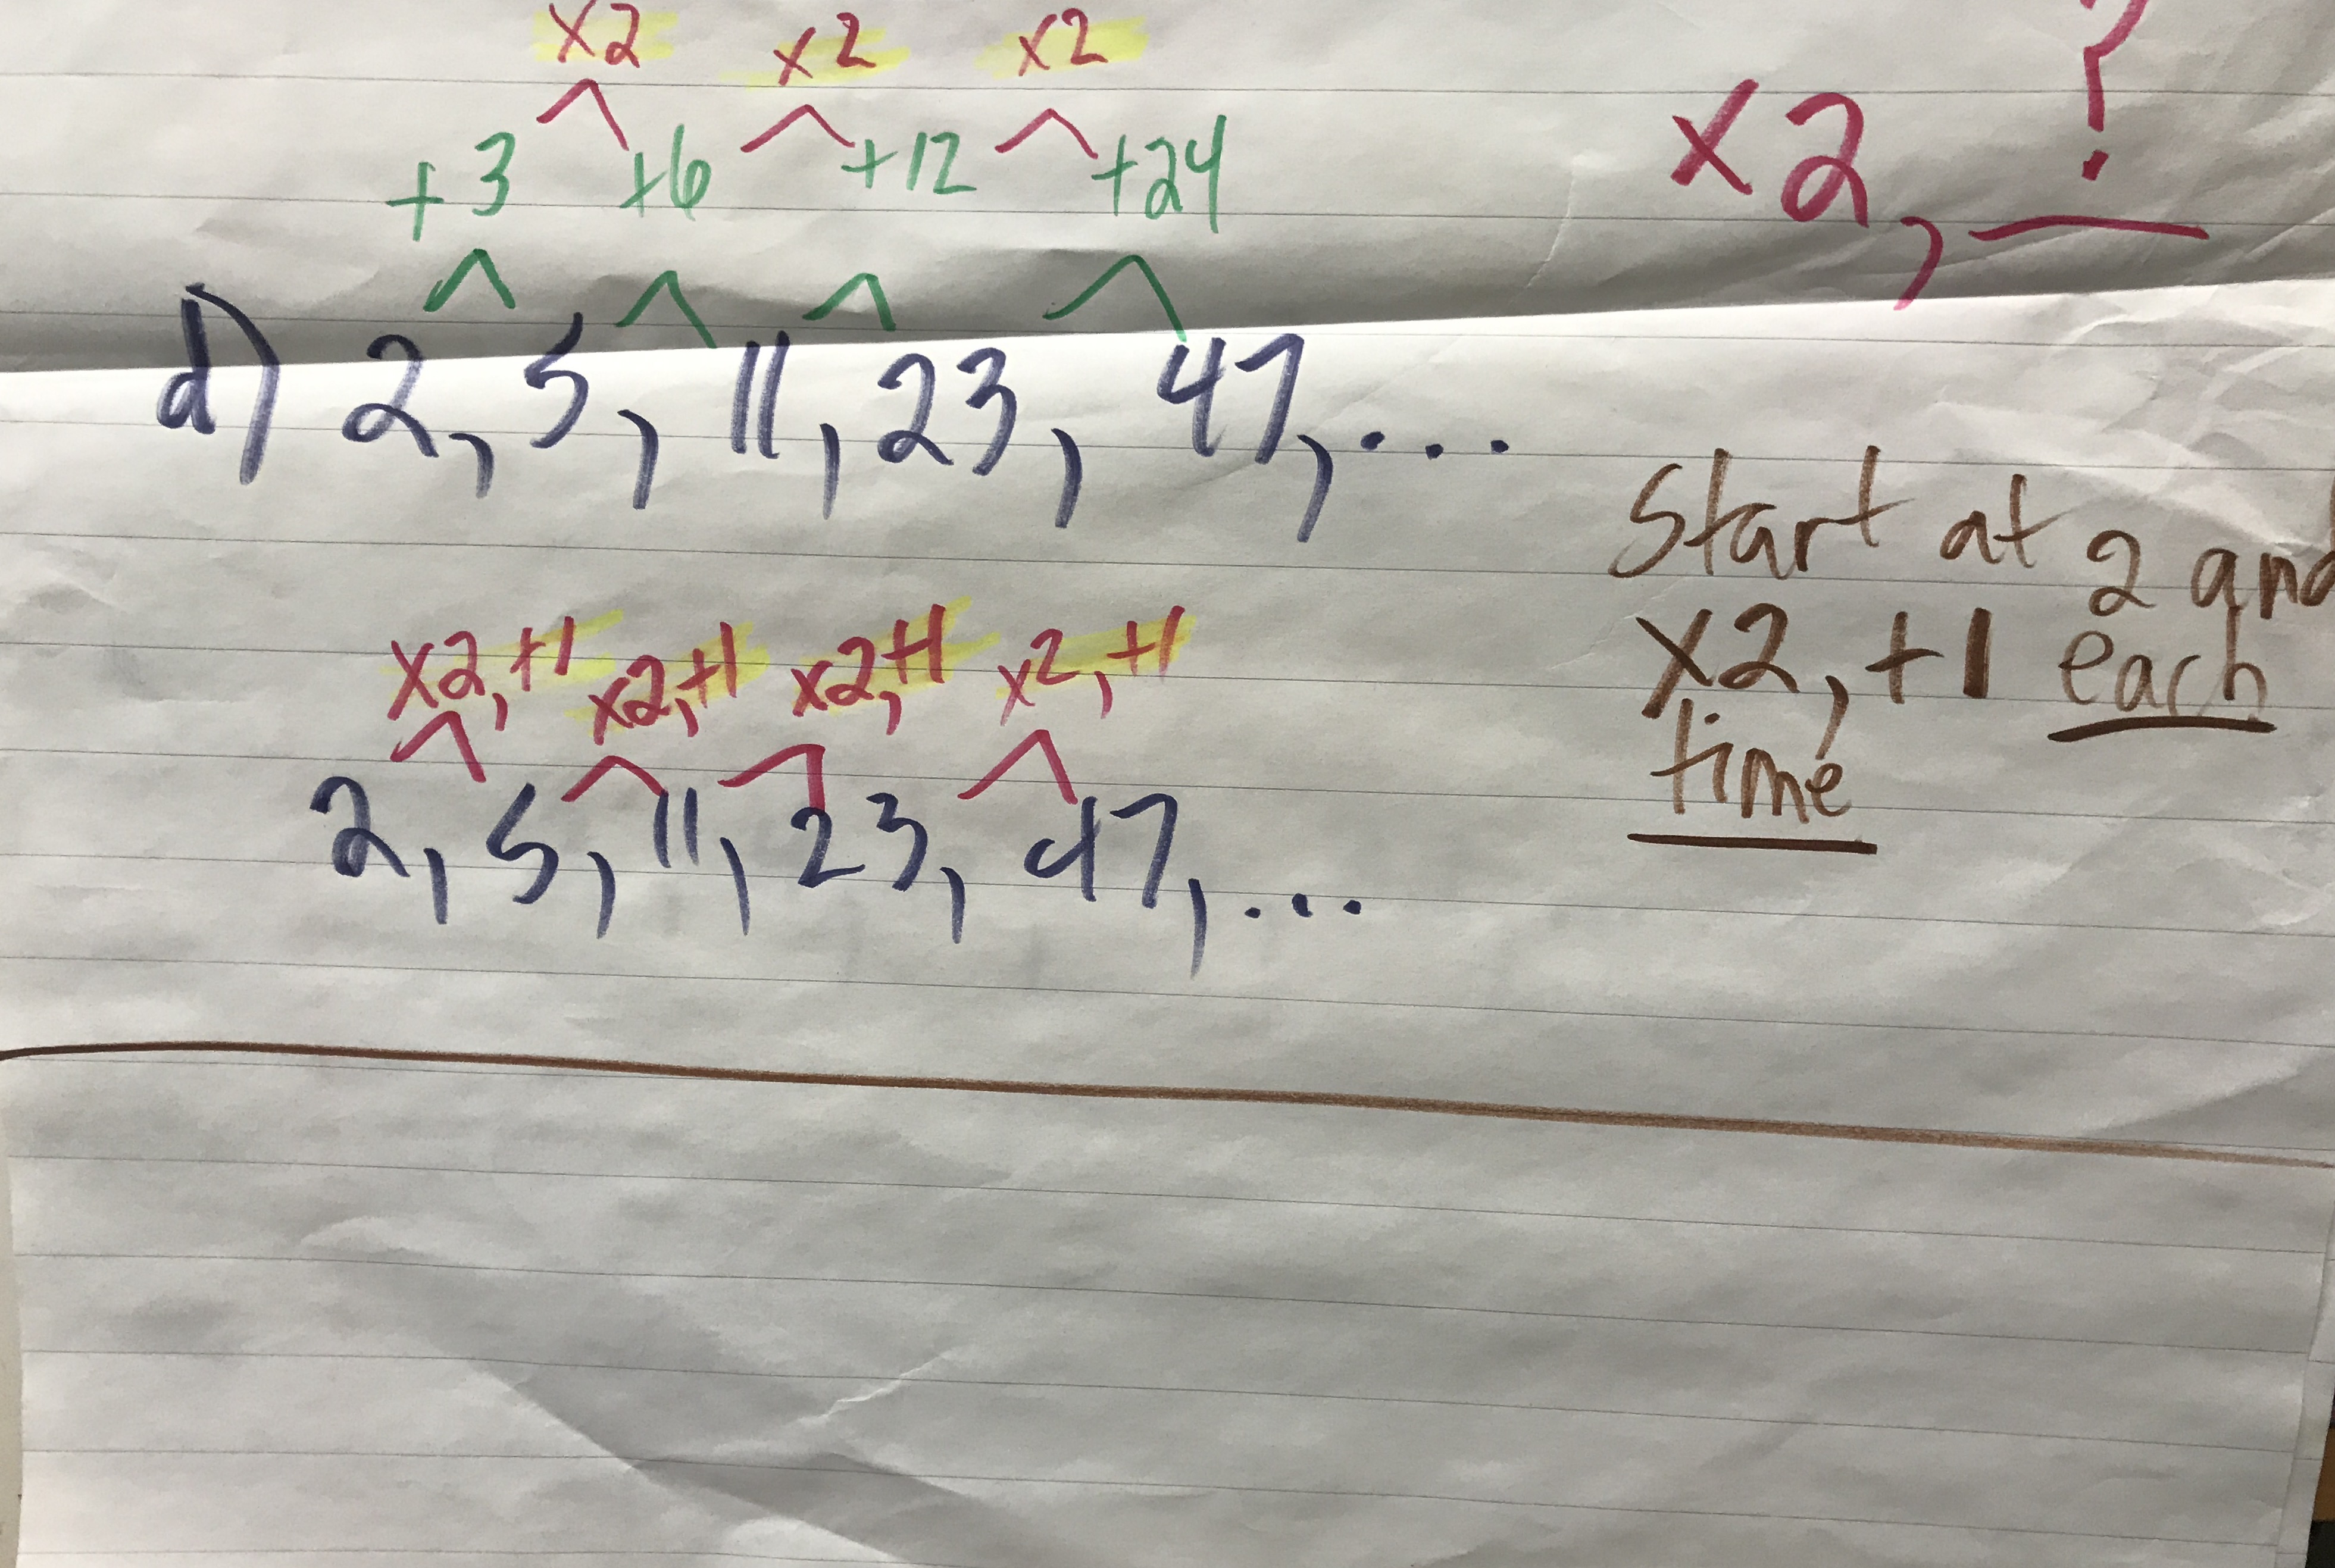 x2 x2 x2
+3 +6 +12 +24
x2, ?
d) 2, 5, 11, 23, 47, ...
Start at 2 and
x2, +1 each
time
x2, +1 x2, +1 x2, +1 x2, +1
2, 5, 11, 23, 47, ...